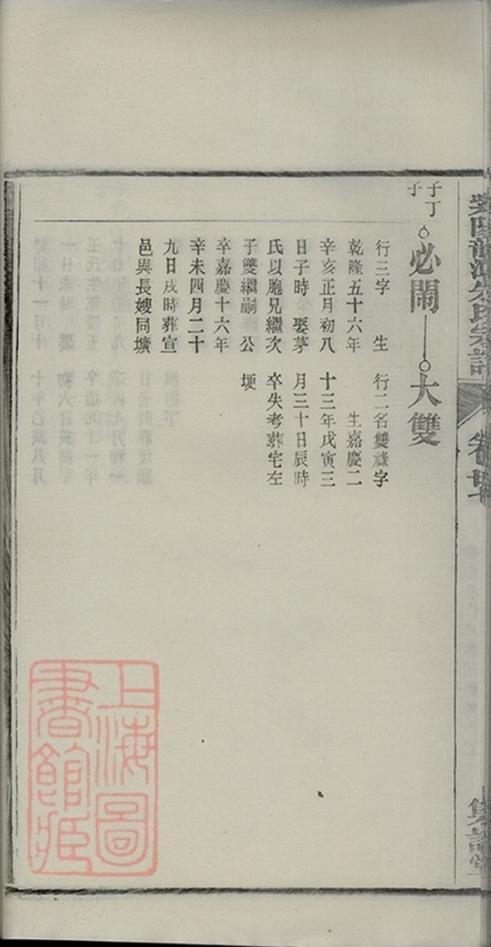 氏宗譜
子丁
子
必閙
大雙
行三字 生
乾隆五十六年
辛亥正月初八
日子時 娶茅
氏以胞兄繼次
子雙繼嗣 公
卒嘉慶十六年
辛未四月二十
九日戌時葬宣
邑與長嫂同壙
行二名雙祿字
生嘉慶二
十三年戊寅三
月三十日辰時
卒失考葬宅左
埂
上海圖
書館藏